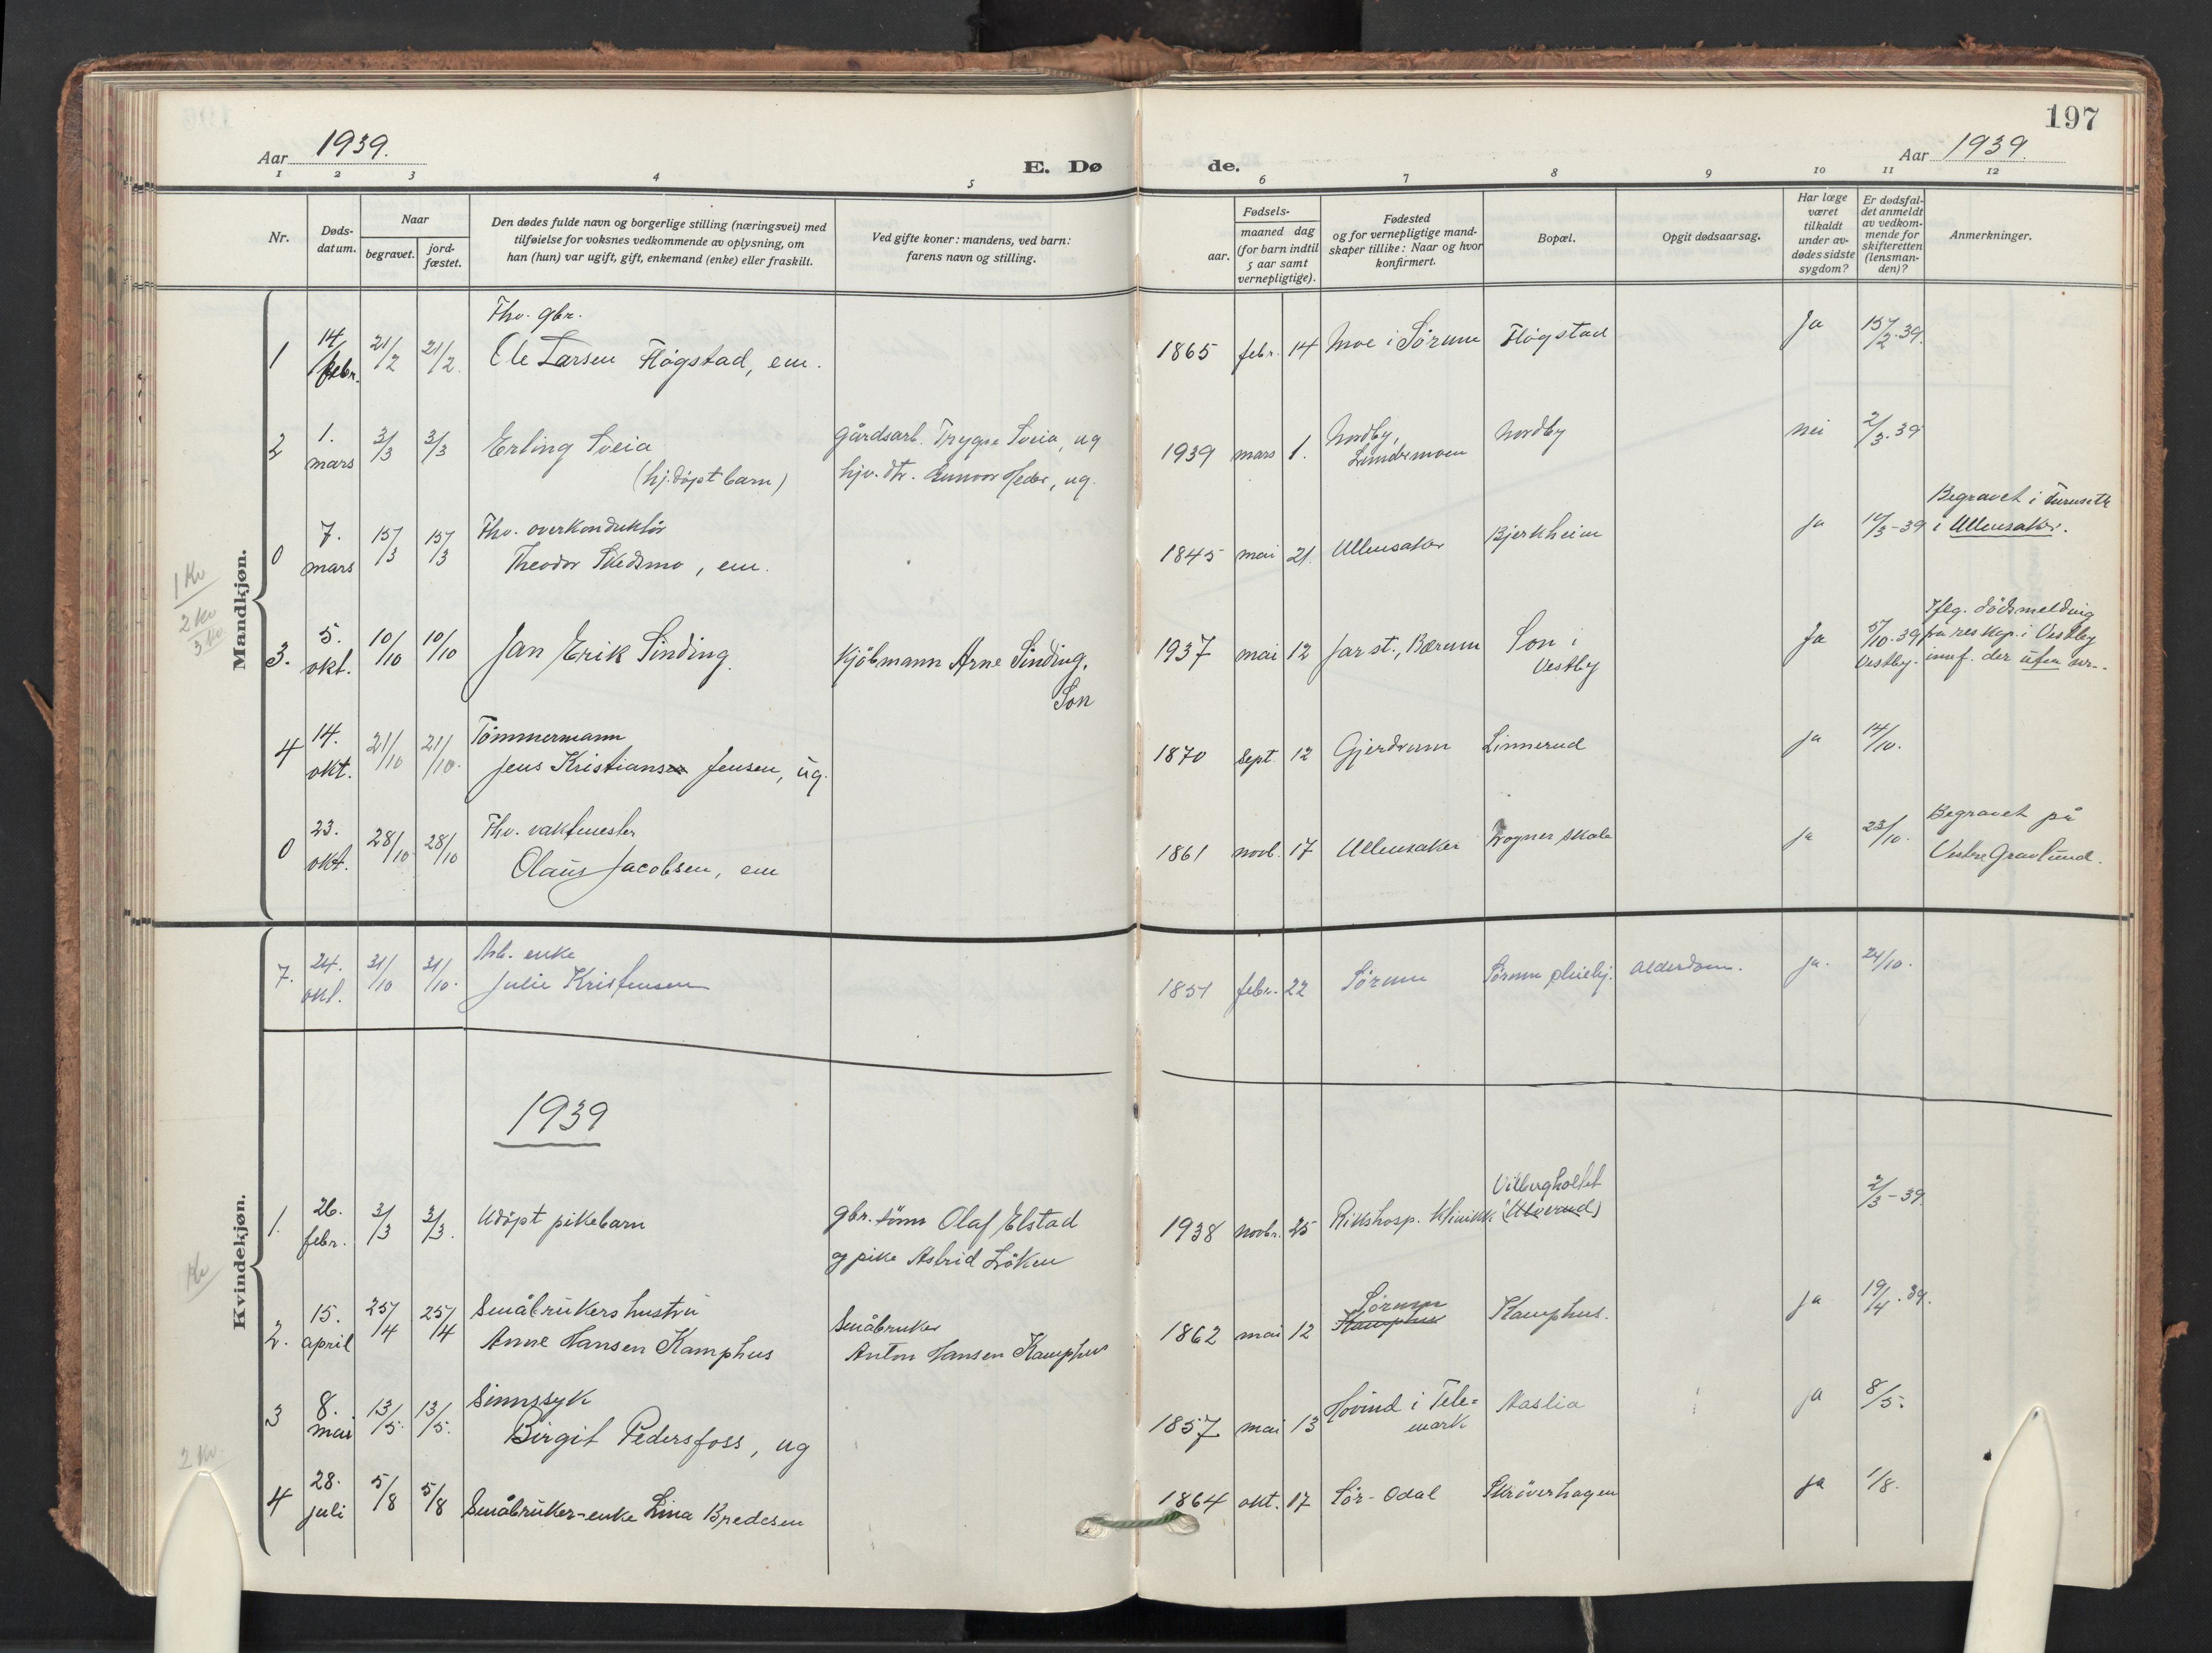 197
Aar 1939.
E. Døde.
Aar 1939.
1 2 3 4 5 6 7 8 9 10 11 12
Nr.
Døds-
datum.
Naar
begravet.
jord-
fæstet.
Den dødes fulde navn og borgerlige stilling (næringsvei) med
tilføielse for voksnes vedkommende av oplysning, om
han (hun) var ugift, gift, enkemand (enke) eller fraskilt.
Ved gifte koner: mandens, ved barn:
farens navn og stilling.
Fødsels-
aar.
maaned dag
(for barn indtil
5 aar samt
vernepligtige).
Fødested
og for vernepligtige mand-
skaper tillike: Naar og hvor
konfirmert.
Bopæl.
Opgit dødsaarsag.
Har læge
været
tilkaldt
under av-
dødes sidste
sygdom?
Er dødsfal-
det anmeldt
av vedkom-
mende for
skifteretten
(lensman-
den)?
Anmerkninger.
Mandkjøn.
1 Kv
2 Kv
3 Kv.
1 14/febr. 21/2 21/2. Fhv. gbr.
Ole Larsen Flögstad, em. 1865 febr. 14 Moe i Sörum Flögstad Ja 15/2.39.
2 1. mars 3/3 3/3 Erling Sveia
(hj.döpt barn)
gårdsarb. Trygve Sveia, ug
hjv. dtr. Gunvor, ug.
1939 mars 1. Nordby,
Lundermoen
Nordby nei 2/3.39
0 7. mars 15/3 15/3 Fhv. overkonduktör
Theodor Skedsmo, em.
1845 mai 21. Ullensaker Bjerkheim ja 10/3-39
Begravet i Furuseth
i Ullensaker.
3. 5. okt. 10/10 10/10 Jan Erik Sinding.
Kjöbmann Arne Sinding,
Son
1937 mai 12 Jar st., Bærum Son i
Vestby
Ja 5/10.39
Vestby.
Iflg. dödsmelding
fra res.kap. i Vestby
innf. der uten nr..
4 14. okt. 21/10 21/10. Tömmermann
Jens Kristiansen Jensen, ug.
1870 Sept. 12 Gjerdrum Linnerud ja 14/10.
0 23. okt. 28/10 28/10 Fhv. vaktmester
Olaus Jacobsen, em
1861 novb. 17 Ullensaker Frogner skole ja 23/10.
Begravet på
Vestre Gravlund.
Kvindekjøn.
Kv
2 Kv.
7. 24. okt. 31/10 31/10. Arb. enke
Julie Kristensen
1851 febr. 22 Sörum Sörum pleiehj. Alderdom. ja. 24/10.
1939
1. 26. febr. 3/3 3/3. Udöpt pikebarn
gbr. sönn Olaf Elstad
og pike Astrid Löken
1938 novbr. 25 Rikshosp. Klinikk Vilbergholtet
(Ulverud)
2/3-39
2. 15. april 25/4 25/4 Småbrukers hustru
Anne Hansen Kamphus
Småbruker
Anton Hansen Kamphus
1862 mai 12 Sörum
Kamphus
Kamphus. ja 19/4.39.
3 8. mai 13/5. 13/5. Sinnssyk
Birgit Pedersfoss, ug
1857 mai 13 Hovind i Tele=
mark
Aaslia ja 8/5.
4 28. juli 5/8 5/8 Småbruker-enke Lina Bredesen
1864 okt. 17 Sör-Odal Skröverhagen ja 1/8.